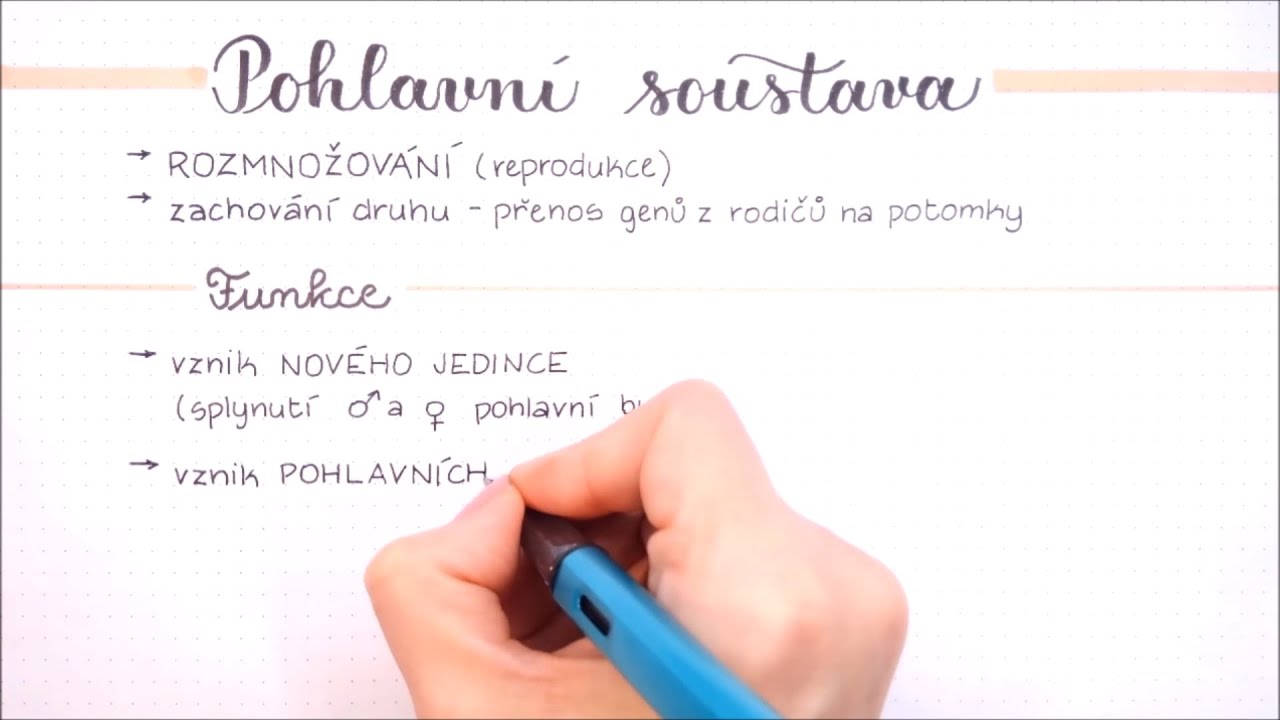 Pohlavní soustava
→ ROZMNOŽOVÁNÍ (reprodukce)
→ zachování druhu - přenos genů z rodičů na potomky
Funkce
→ vznik NOVÉHO JEDINCE
(splynutí ♂ a ♀ pohlavní
→ vznik POHLAVNÍCH